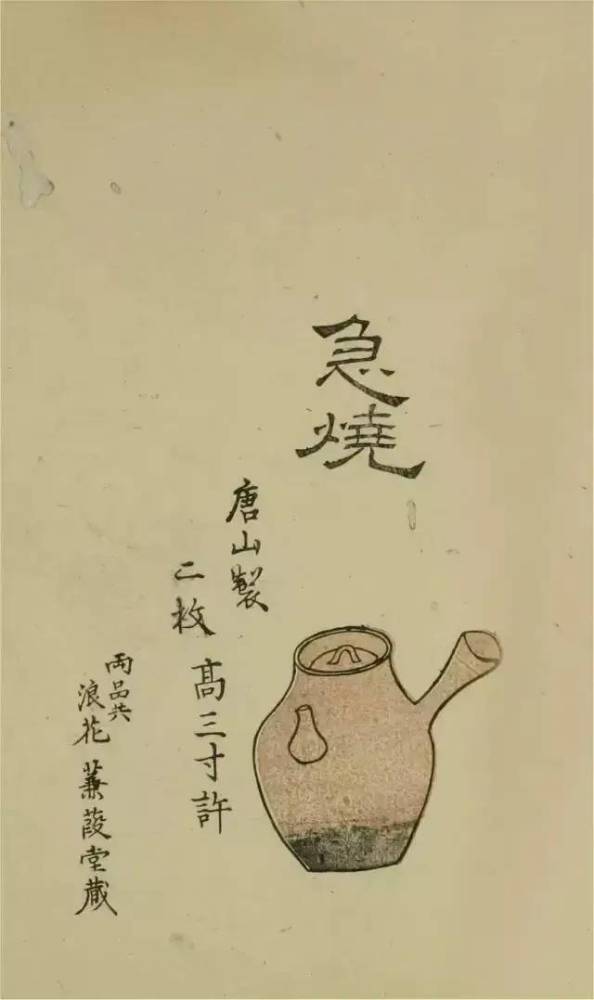 急燒
唐山製
二枚 高三寸許
兩品共
浪花 蒹葭堂蔵